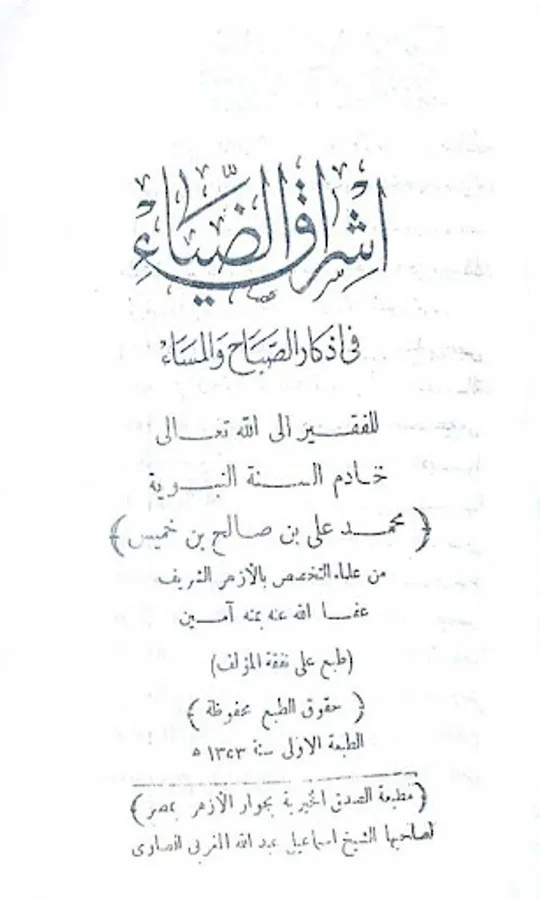 إشراق الضياء
في اذكار الصباح والمساء
للفقير الى الله تعالى
خادم السنة النبوية
﴿ محمد على بن صالح بن خميس ﴾
من علماء التخصص بالأزهر الشريف
عفا الله عنه بمنه آمين
(طبع على نفقة المؤلف)
﴿ حقوق الطبع محفوظة ﴾
الطبعة الاولى سنة ١٣٤٣ ه
﴿ مطبعة الصدق الخيرية بجوار الأزهر بمصر ﴾
لصاحبها الشيخ اسماعيل عبد الله المغربى